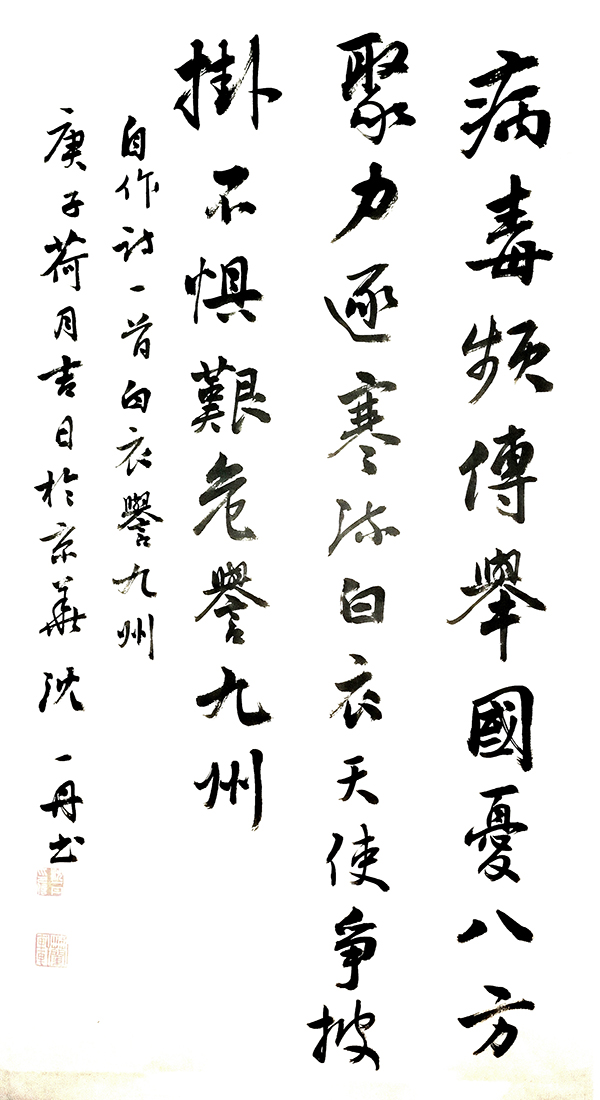 病毒頻傳舉國憂八方
聚力逐寒流白衣天使爭披
掛不懼艱危譽九州
自作詩一首白衣譽九州
庚子荷月吉日於京華沈一丹书